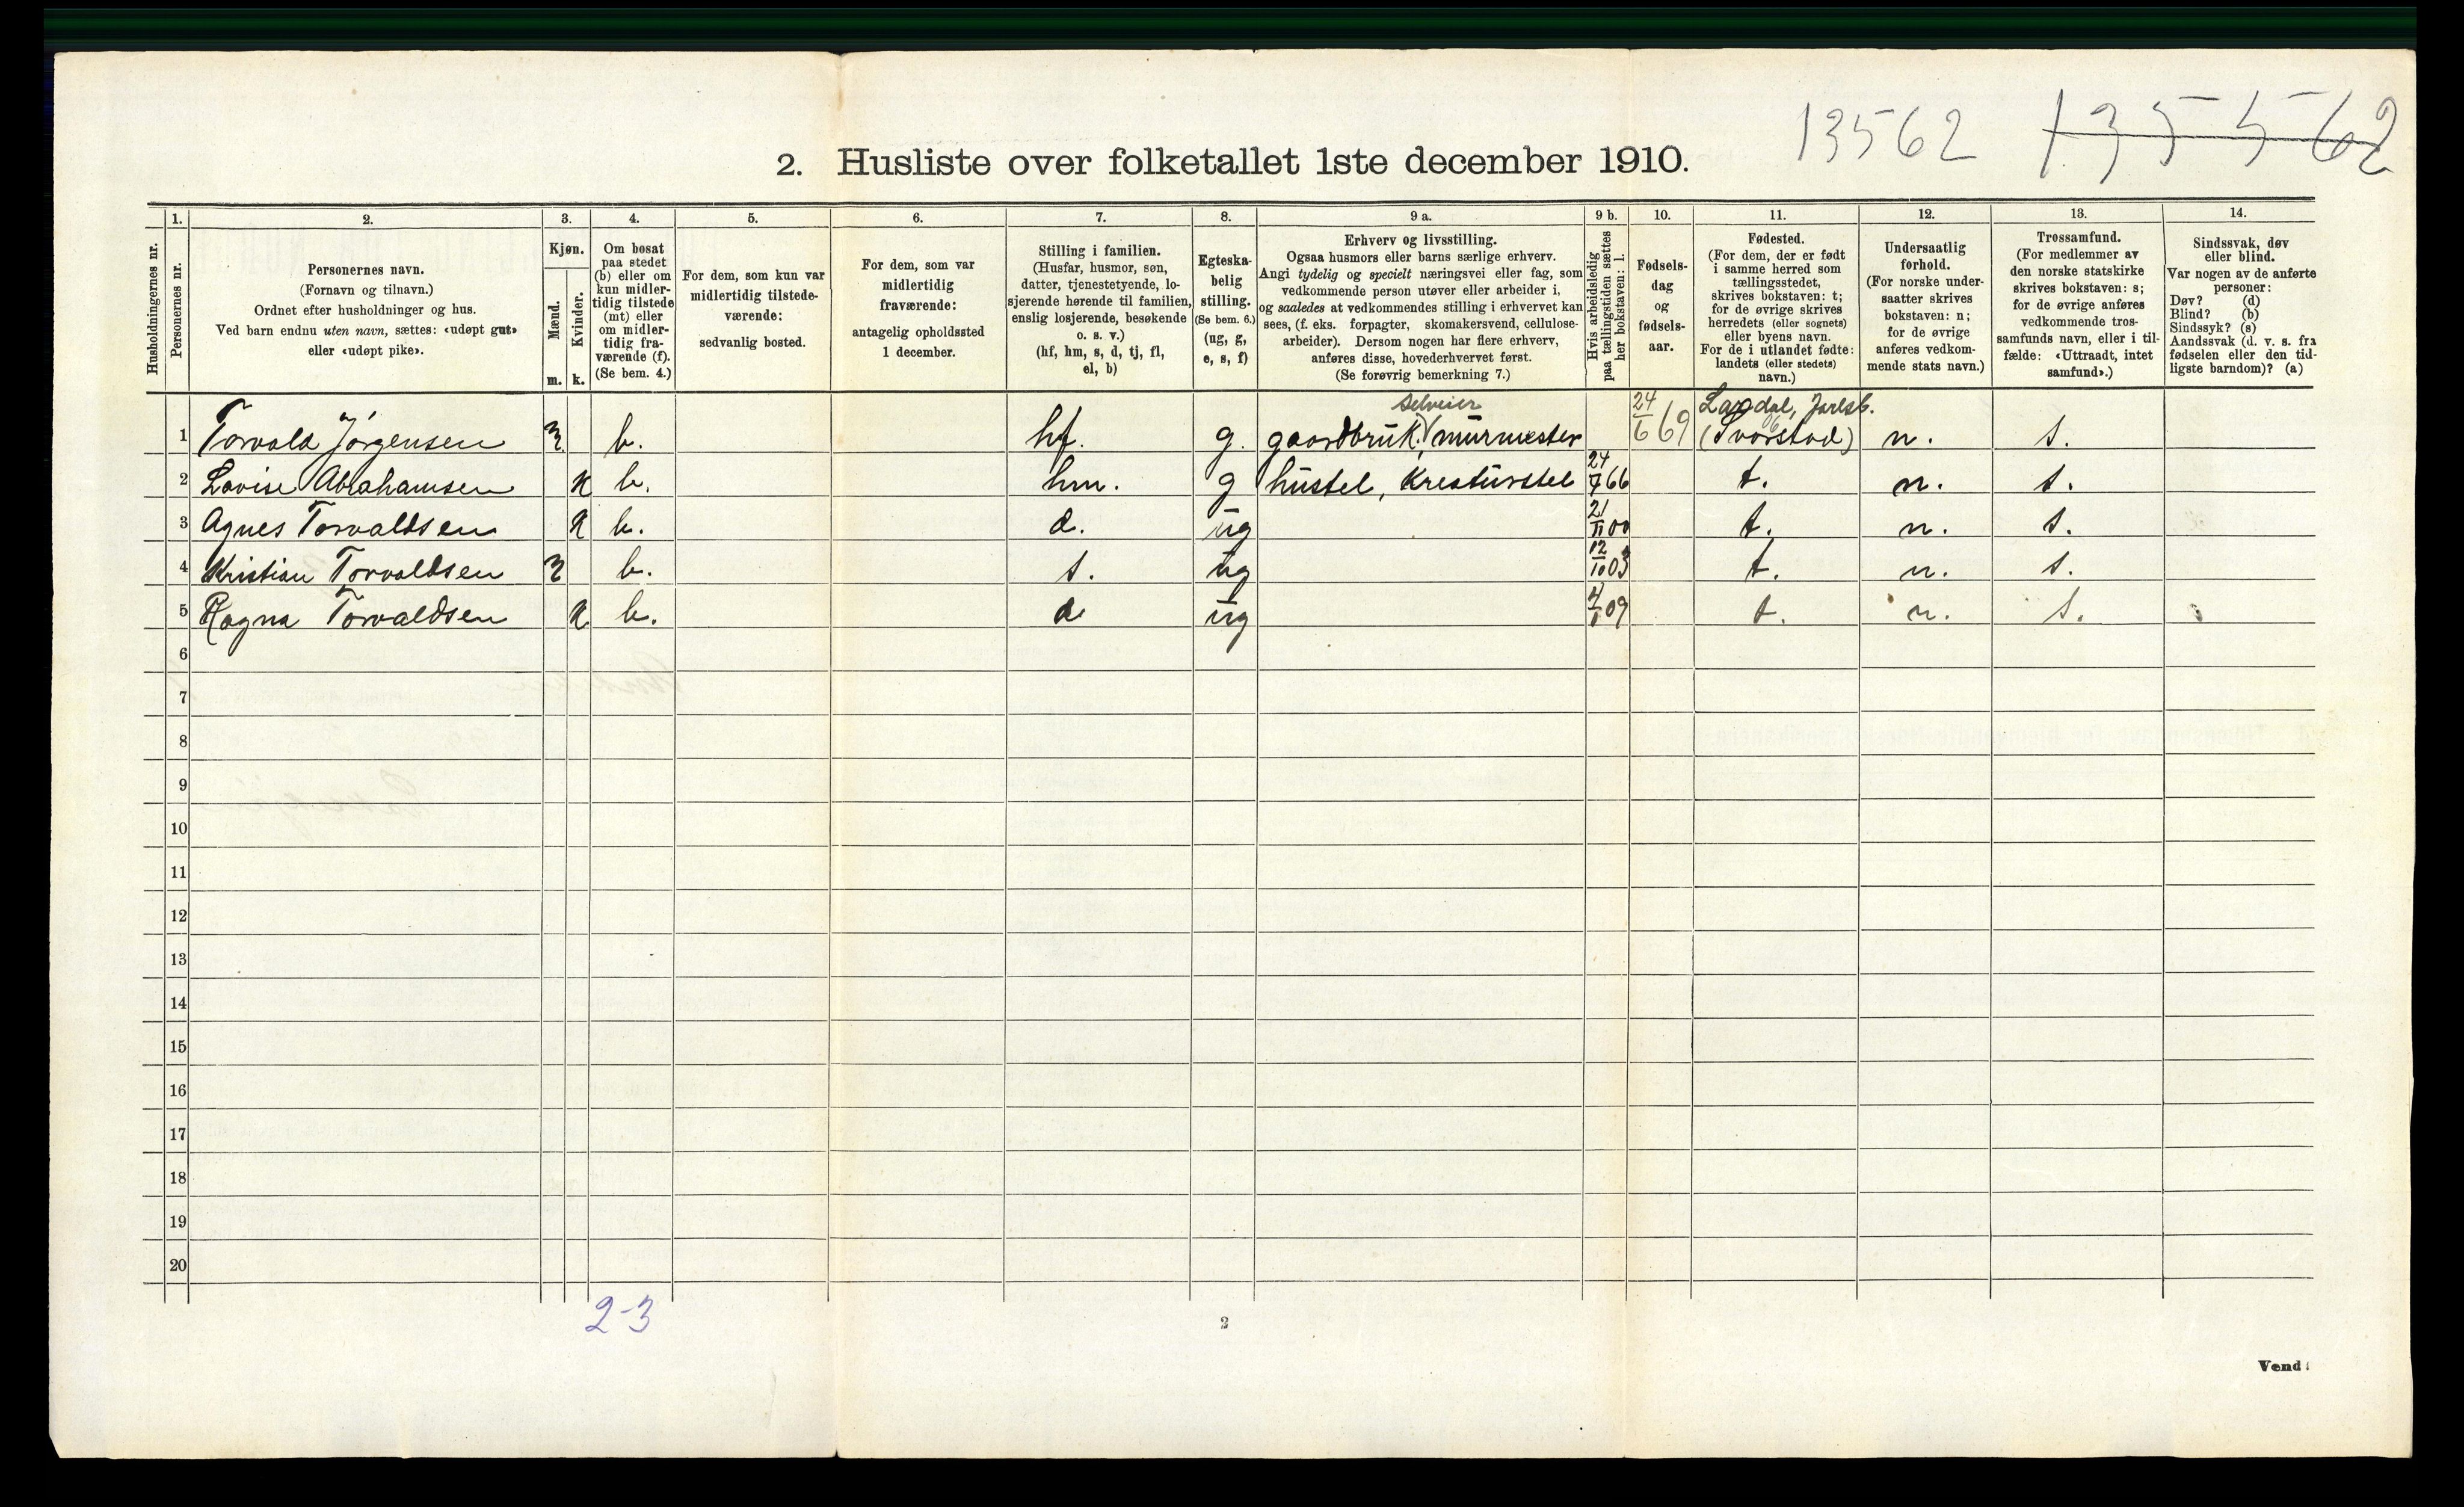 13562 135562
2. Husliste over folketallet 1ste december 1910.
1. 2. 3. 4. 5. 6. 7. 8. 9 a. 9 b. 10. 11. 12. 13. 14.
Husholdningernes nr.
Personernes nr.
Personernes navn.
(Fornavn og tilnavn.)
Ordnet efter husholdninger og hus.
Ved barn endnu uten navn, sættes: «udøpt gut»
eller «udøpt pike».
Kjøn.
Mænd.
Kvinder.
m. k.
Om bosat
paa stedet
(b) eller om
kun midler-
tidig tilstede
(mt) eller
om midler-
tidig fra-
værende (f).
(Se bem. 4.)
For dem, som kun var
midlertidig tilstede-
værende:
sedvanlig bosted.
For dem, som var
midlertidig
fraværende:
antagelig opholdssted
1 december.
Stilling i familien.
(Husfar, husmor, søn,
datter, tjenestetyende, lo-
sjerende hørende til familien,
enslig losjerende, besøkende
o. s. v.)
(hf, hm, s, d, tj, fl,
el, b)
Egteska-
belig
stilling.
(Se bem. 6.)
(ug, g,
e, s, f)
Erhverv og livsstilling.
Ogsaa husmors eller barns særlige erhverv.
Angi tydelig og specielt næringsvei eller fag, som
vedkommende person utøver eller arbeider i,
og saaledes at vedkommendes stilling i erhvervet kan
sees, (f. eks. forpagter, skomakersvend, cellulose-
arbeider). Dersom nogen har flere erhverv,
anføres disse, hovederhvervet først.
(Se forøvrig bemerkning 7.)
Hvis arbeidsledig
paa tællingstiden sættes
her bokstaven: l.
Fødsels-
dag
og
fødsels-
aar.
Fødested.
(For dem, der er født
i samme herred som
tællingsstedet,
skrives bokstaven: t;
for de øvrige skrives
herredets (eller sognets)
eller byens navn.
For de i utlandet fødte:
landets (eller stedets)
navn.)
Undersaatlig
forhold.
(For norske under-
saatter skrives
bokstaven: n;
for de øvrige
anføres vedkom-
mende stats navn.)
Trossamfund.
(For medlemmer av
den norske statskirke
skrives bokstaven: s;
for de øvrige anføres
vedkommende tros-
samfunds navn, eller i til-
fælde: «Uttraadt, intet
samfund».)
Sindssvak, døv
eller blind.
Var nogen av de anførte
personer:
Døv? (d)
Blind? (b)
Sindssyk? (s)
Aandssvak (d. v. s. fra
fødselen eller den tid-
ligste barndom)? (a)
selveier
Lardal, Jarlsb.
1 Torvald Jørgensen m b. hf. g. gaardbruk, murmester 24/6 69 (Svarstad) n. s.
2 Lovise Abrahamsen k b. hm. g hustel, kreaturstel 24/7 66 t. n. s.
3 Agnes Torvaldsen k b. d. ug 21/11 00 t. n. s.
4 Kristian Torvaldsen m b. s. ug 12/10 03 t. n. s.
5 Ragna Torvaldsen k b. d ug 4/1 09 t. n. s.
6
7
8
9
10
11
12
13
14
15
16
17
18
19
20
2-3
2
Vend!